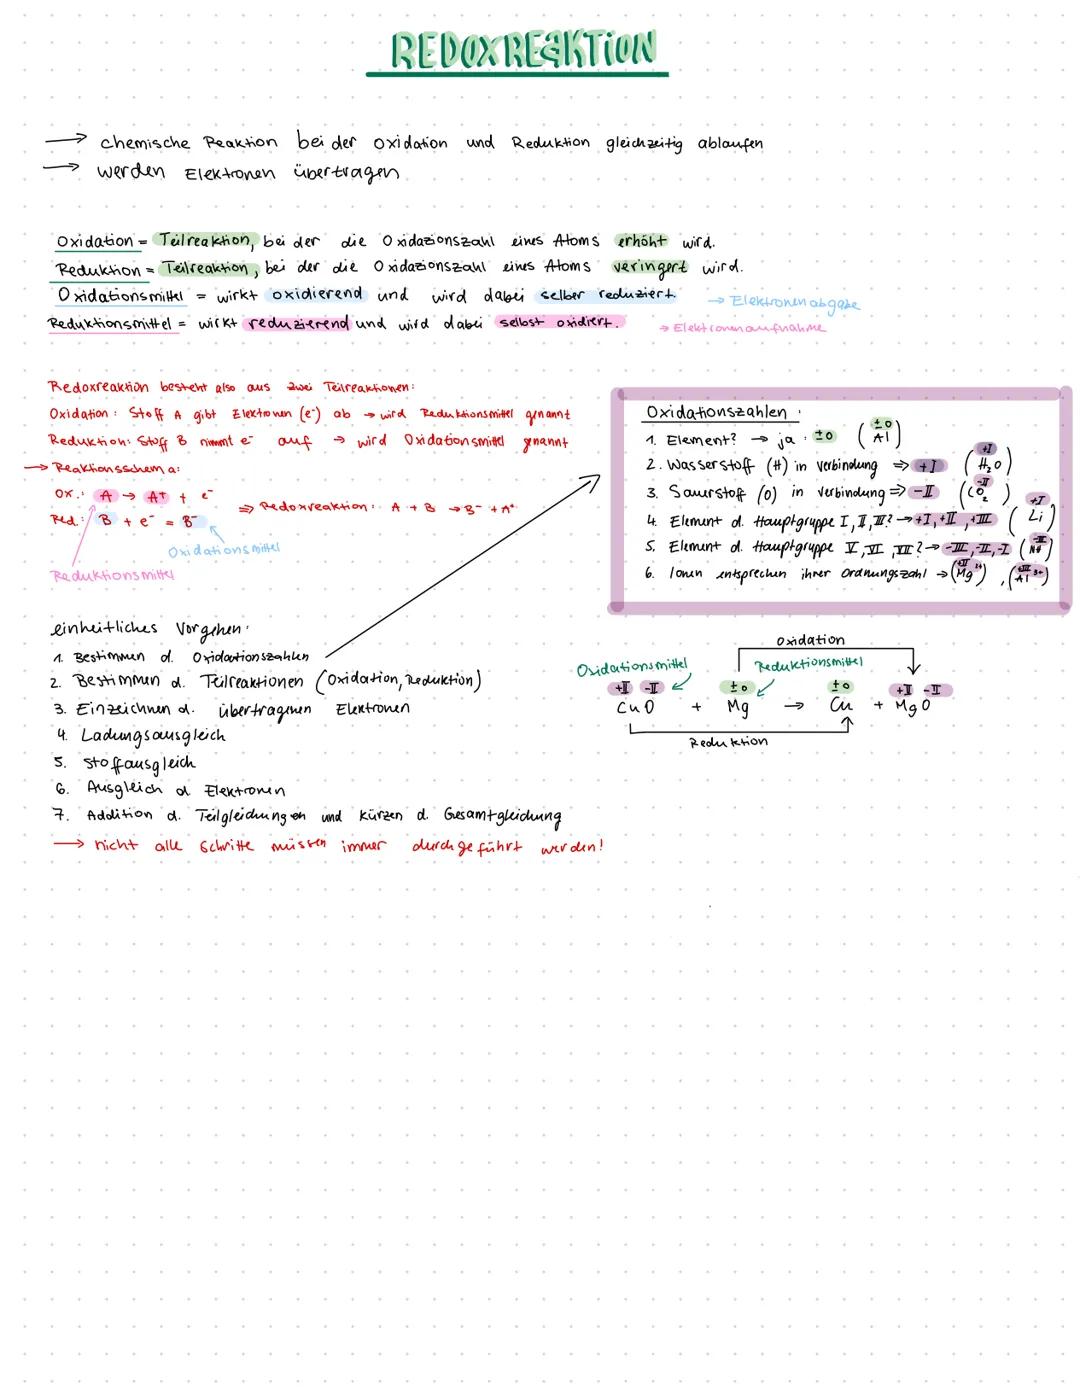 REDOXREAKTION
→ chemische Reaktion bei der Oxidation und Reduktion gleichzeitig ablaufen
→ werden Elektronen übertragen
Oxidation = Teilreaktion, bei der die Oxidazionszahl eines Atoms erhöht wird.
Reduktion = Teilreaktion, bei der die Oxidazionszahl eines Atoms veringert wird.
Oxidationsmittel = wirkt oxidierend und wird dabei selber reduziert. → Elektronenabgabe
Reduktionsmittel = wirkt reduzierend und wird dabei selbst oxidiert. → Elektronenaufnahme
Redoxreaktion besteht also aus zwei Teilreaktionen:
Oxidation: Stoff A gibt Elektronen (e⁻) ab → wird Reduktionsmittel genannt
Reduktion: Stoff B nimmt e⁻ auf → wird Oxidationsmittel genannt
→ Reaktionsschema:
Ox.: A → A⁺ + e⁻
Red.: B + e⁻ = B⁻
⇒ Redoxreaktion: A + B → B⁻ + A⁺
Oxidationsmittel
Reduktionsmittel
Oxidationszahlen:
1. Element? → ja: ±0 (±0 Al)
2. Wasserstoff (H) in Verbindung ⇒ +I (+I H₂O)
3. Sauerstoff (O) in Verbindung ⇒ -II (-II CO₂)
4. Element d. Hauptgruppe I, II, III? → +I, +II, +III (+I Li)
5. Element d. Hauptgruppe V, VI, VII? → -III, -II, -I
6. Ionen entsprechen ihrer Ordnungszahl → (+II Mg²⁺), (+III Al³⁺)
einheitliches Vorgehen:
1. Bestimmen d. Oxidationszahlen
2. Bestimmen d. Teilreaktionen (Oxidation, Reduktion)
3. Einzeichnen d. übertragenen Elektronen
4. Ladungsausgleich
5. Stoffausgleich
6. Ausgleich d. Elektronen
7. Addition d. Teilgleichungen und kürzen d. Gesamtgleichung
→ nicht alle Schritte müssen immer durchgeführt werden!
Oxidation
Oxidationsmittel Reduktionsmittel
+II -II ±0 ±0 +II -II
CuO + Mg → Cu + MgO
Reduktion